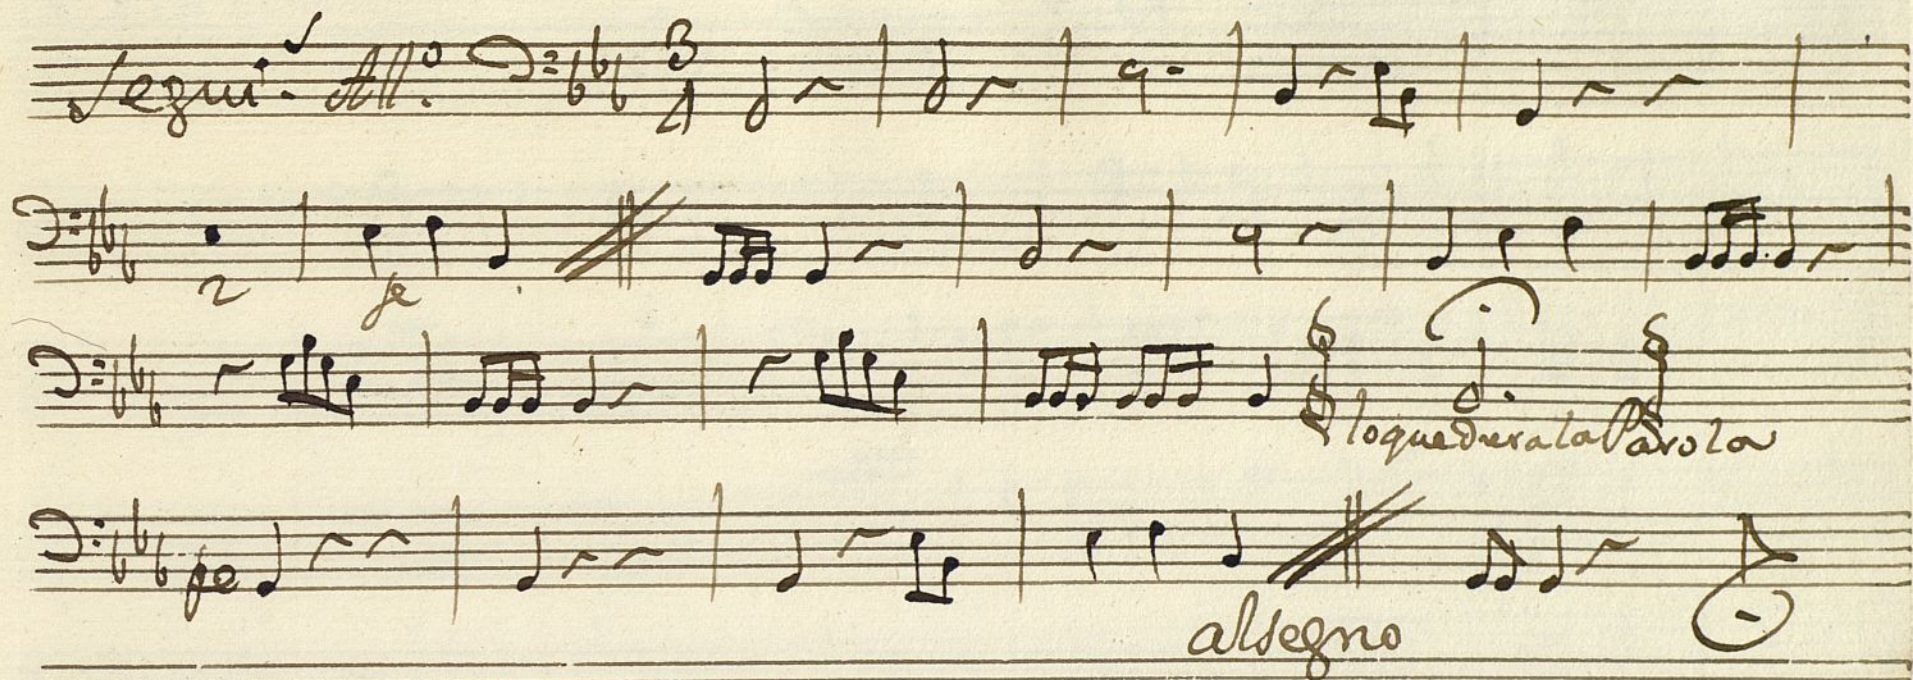 Segui.s All.o 3 4
2 fe
lo que dura la Parola
po
al segno